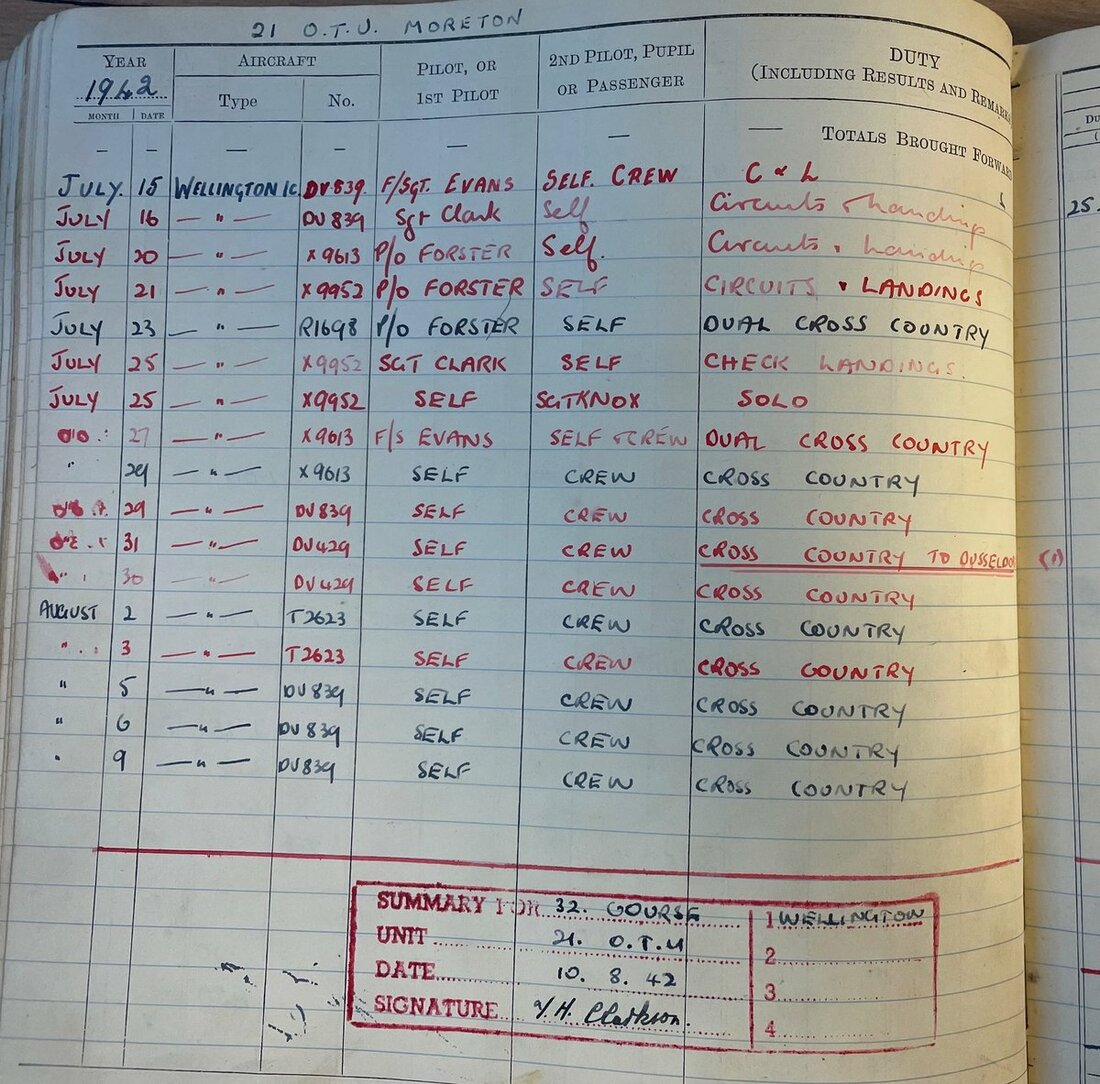 21 O.T.U. MORETON
YEAR AIRCRAFT PILOT, OR 1ST PILOT 2ND PILOT, PUPIL OR PASSENGER DUTY (INCLUDING RESULTS AND REMARKS
1942 Type No.
MONTH DATE
— — — — — — — TOTALS BROUGHT FORWARD
JULY. 15 WELLINGTON IC. DV839. F/SGT. EVANS SELF. CREW C & L
JULY 16 — " — DV839 Sgt Clark Self Circuits & Landings
JULY 20 — " — X9613 P/O FORSTER Self. Circuits & Landings
JULY 21 — " — X9952 P/O FORSTER SELF CIRCUITS & LANDINGS
JULY 23 — " — R1698 P/O FORSTER SELF DUAL CROSS COUNTRY
JULY 25 — " — X9952 SGT CLARK SELF CHECK LANDINGS.
JULY 25 — " — X9952 SELF SGT KNOX SOLO
27 — " — X9613 F/S EVANS SELF & CREW DUAL CROSS COUNTRY
" 29 — " — X9613 SELF CREW CROSS COUNTRY
29 — " — DV839 SELF CREW CROSS COUNTRY
31 — " — DV429 SELF CREW CROSS COUNTRY TO DUSSELDORF (1)
" 30 — " — DV429 SELF CREW CROSS COUNTRY
AUGUST 2 — " — T2623 SELF CREW CROSS COUNTRY
" 3 — " — T2623 SELF CREW CROSS COUNTRY
" 5 — " — DV839 SELF CREW CROSS COUNTRY
" 6 — " — DV839 SELF CREW CROSS COUNTRY
" 9 — " — DV839 SELF CREW CROSS COUNTRY
SUMMARY FOR 32. COURSE 1 WELLINGTON
UNIT 21. O.T.U 2
DATE 10. 8. 42 3
SIGNATURE Y.H. Clarkson. 4
25